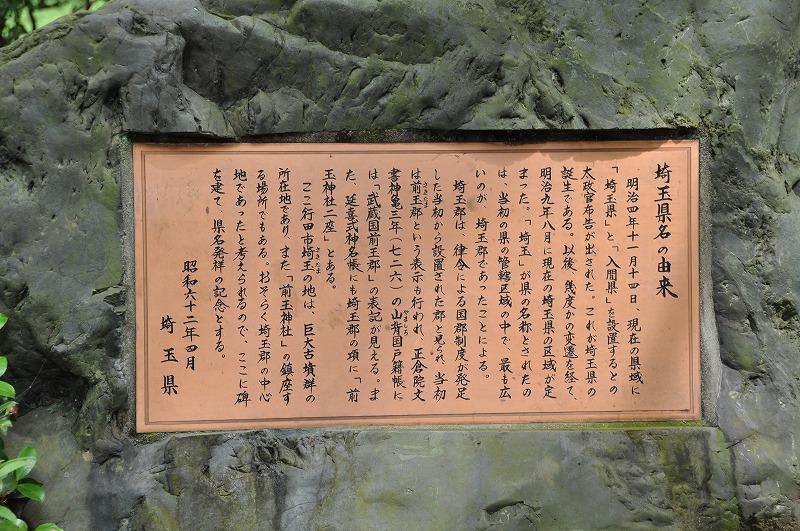 埼玉県名の由来
明治四年十一月十四日、現在の県域に
「埼玉県」と「入間県」を設置するとの
太政官布告が出された。これが埼玉県の
誕生である。以後、幾度かの変遷を経て、
明治九年八月に現在の埼玉県の区域が定
まった。「埼玉」が県の名称とされたの
は、当初の県の管轄区域の中で、最も広
いのが、埼玉郡であったことによる。
埼玉郡は、律令による国郡制度が発足
した当初から設置された郡と見られ、当初
は前玉郡という表示も行われ、正倉院文
書神亀三年（七二六）の山背国戸籍帳に
は「武蔵国前玉郡」の表記が見える。ま
た、延喜式神名帳にも埼玉郡の項に「前
玉神社二座」とある。
ここ行田市埼玉の地は、巨大古墳群の
所在地であり、また「前玉神社」の鎮座す
る場所でもある。おそらく埼玉郡の中心
地であったと考えられるので、ここに碑
を建て、県名発祥の記念とする。
昭和六十二年四月
埼玉県